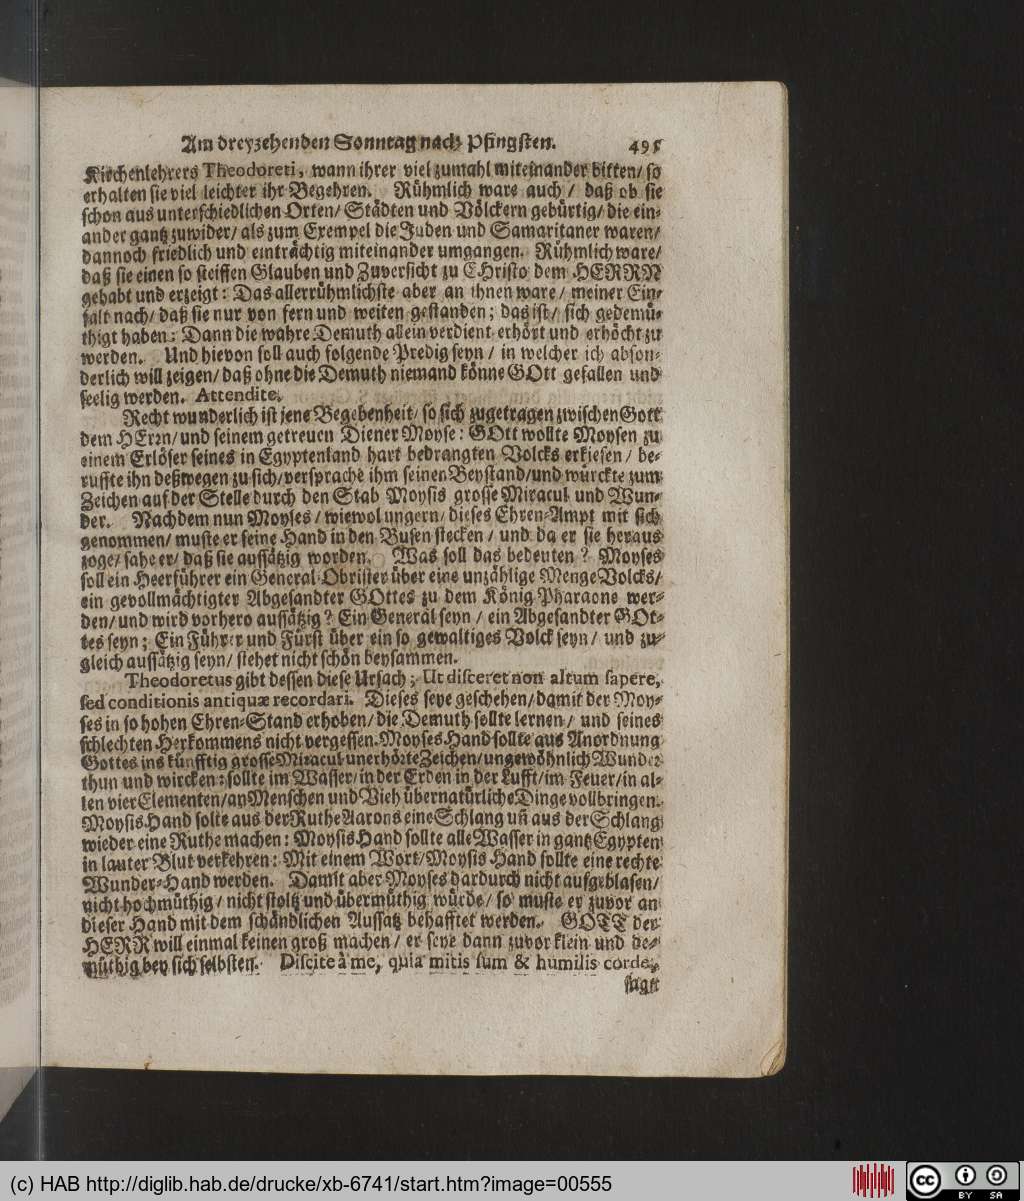 Am dreyzehenden Sonntag nach Pfingsten. 495
Kirchenlehrers Theodoreti, wann ihrer viel zumahl miteinander bitten/ so
erhalten sie viel leichter ihr Begehren. Rühmlich ware auch / daß ob sie
schon aus unterschiedlichen Orten/ Städten und Völckern gebürtig/ die ein-
ander gantz zuwider/ als zum Exempel die Juden und Samaritaner waren/
dannoch friedlich und einträchtig miteinander umgangen. Rühmlich ware/
daß sie einen so steiffen Glauben und Zuversicht zu CHristo dem HERRN
gehabt und erzeigt: Das allerrühmlichste aber an ihnen ware / meiner Ein-
falt nach/ daß sie nur von fern und weiten gestanden; das ist/ sich gedemü-
thigt haben: Dann die wahre Demuth allein verdient erhört und erhöcht zu
werden. Und hievon soll auch folgende Predig seyn / in welcher ich abson-
derlich will zeigen/ daß ohne die Demuth niemand könne GOtt gefallen und
seelig werden. Attendite.
Recht wunderlich ist jene Begebenheit/ so sich zugetragen zwischen Gott
dem HErrn/ und seinem getreuen Diener Moyse: GOtt wollte Moysen zu
einem Erlöser seines in Egyptenland hart bedrangten Volcks erkiesen / be-
ruffte ihn deßwegen zu sich/ versprache ihm seinen Beystand/und würckte zum
Zeichen auf der Stelle durch den Stab Moysis grosse Miracul und Wun-
der. Nachdem nun Moyses / wiewol ungern/ dieses Ehren-Ampt mit sich
genommen/ muste er seine Hand in den Busen stecken / und da er sie heraus
zoge/ sahe er/ daß sie aussätzig worden. Was soll das bedeuten? Moyses
soll ein Heerführer ein General-Obrister über eine unzählige Menge Volcks/
ein gevollmächtigter Abgesandter GOttes zu dem König Pharaone wer-
den/ und wird vorhero aussätzig? Ein General seyn / ein Abgesandter GOt-
tes seyn; Ein Führer und Fürst über ein so gewaltiges Volck seyn/ und zu-
gleich aussätzig seyn/ stehet nicht schön beysammen.
Theodoretus gibt dessen diese Ursach; Ut disceret non altum sapere,
sed conditionis antiquæ recordari. Dieses seye geschehen/ damit der Moy-
ses in so hohen Ehren-Stand erhoben/ die Demuth sollte lernen / und seines
schlechten Herkommens nicht vergessen. Moyses Hand sollte aus Anordnung
Gottes ins künfftig grosse Miracul unerhörte Zeichen/ ungewöhnlich Wunder
thun und wircken: sollte im Wasser/ in der Erden in der Lufft/ im Feuer/ in al-
len vier Elementen/ an Menschen und Vieh übernatürliche Dinge vollbringen.
Moysis Hand solte aus der Ruthe Aarons eine Schlang uñ aus der Schlang
wieder eine Ruthe machen: Moysis Hand sollte alle Wasser in gantz Egypten
in lauter Blut verkehren: Mit einem Wort/ Moysis Hand sollte eine rechte
Wunder-Hand werden. Damit aber Moyses dardurch nicht aufgeblasen/
nicht hochmüthig / nicht stoltz und übermüthig würde/ so muste er zuvor an
dieser Hand mit dem schändlichen Aussatz behafftet werden. GOTT der
HERR will einmal keinen groß machen/ er seye dann zuvor klein und de-
müthig bey sich selbsten. Discite à me, quia mitis sum & humilis corde,
sagt
(c) HAB http://diglib.hab.de/drucke/xb-6741/start.htm?image=00555
cc BY SA